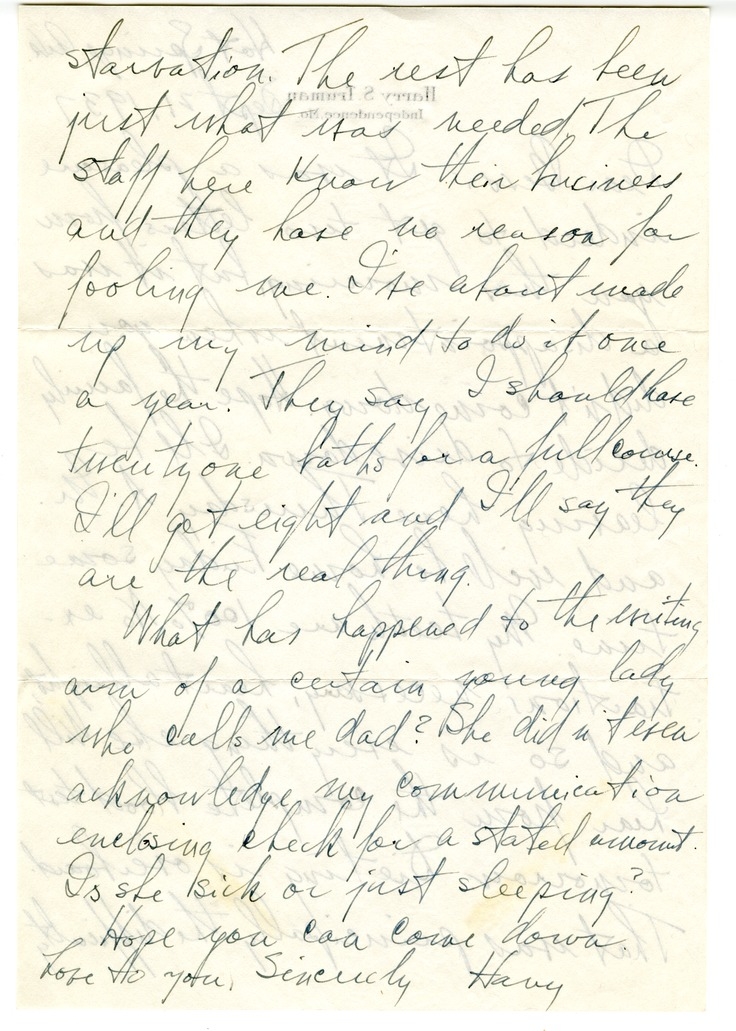 starvation. The rest has been
just what was needed. The
staff here know their business
and they have no reason for
fooling me. I've about made
up my mind to do it once
a year. They say I should have
twenty one baths for a full course.
I'll get eight and I'll say they
are the real thing.
What has happened to the writing
arm of a certain young lady
who calls me dad? She didn't even
acknowledge my communication
enclosing check for a stated amount.
Is she sick or just sleeping?
Hope you can come down.
Love to you, Sincerely Harry
Harry S. Truman
Independence, Mo.